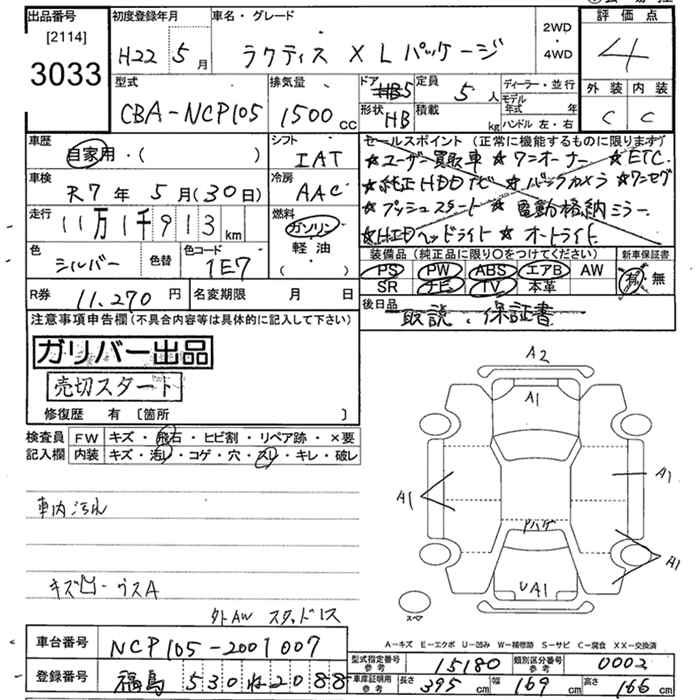 出品番号 初度登録年月 車名・グレード 評価点
[2114]
3033
H22 5月 ラクティス XLパッケージ 2WD・4WD 4
型式 排気量 ドア 定員 ディーラー・並行 外装 内装
CBA-NCP105 1500cc HB5 5人 モデル年式 年 C C
形状 HB 積載 kg ハンドル 左・右
車歴 シフト セールスポイント (正常に機能するものに限ります)
自家用・( ) IAT ★ユーザー買取車 ★ワンオーナー ★ETC
車検 冷房 ★純正HDDナビ ★バックカメラ ★ワンセグ
R7年 5月(30日) AAC ★プッシュスタート ★電動格納ミラー
走行 燃料 ★HIDヘッドライト ★オートライト
11万1千913km ガソリン・軽油・( )
色 色替 色コード 装備品 (純正品に限り○をつけてください) 新車保証書
シルバー 1E7 PS PW ABS エアB AW 有・無
SR ナビ TV 本革
R券 11,270円 名変期限 月 日 後日品 取説・保証書
注意事項申告欄(不具合内容等は具体的に記入して下さい)
ガリバー出品
売切スタート
修復歴 有 [箇所 ]
検査員 FW キズ・飛石・ヒビ割・リペア跡・×要
記入欄 内装 キズ・汚レ・コゲ・穴・スレ・キレ・破レ
車内汚れ
A2
A1
A1
A1
A1
UA1
スペア
外AW スタッドレス
A-キズ E-エクボ U-凹み W-補修跡 S-サビ C-腐食 XX-交換済
車台番号 NCP105-2001007
型式指定番号 参考 15180 類別区分番号 参考 0002
登録番号 福島 530 2088
車庫証明用 参考 長さ 395cm 幅 169cm 高さ 166cm